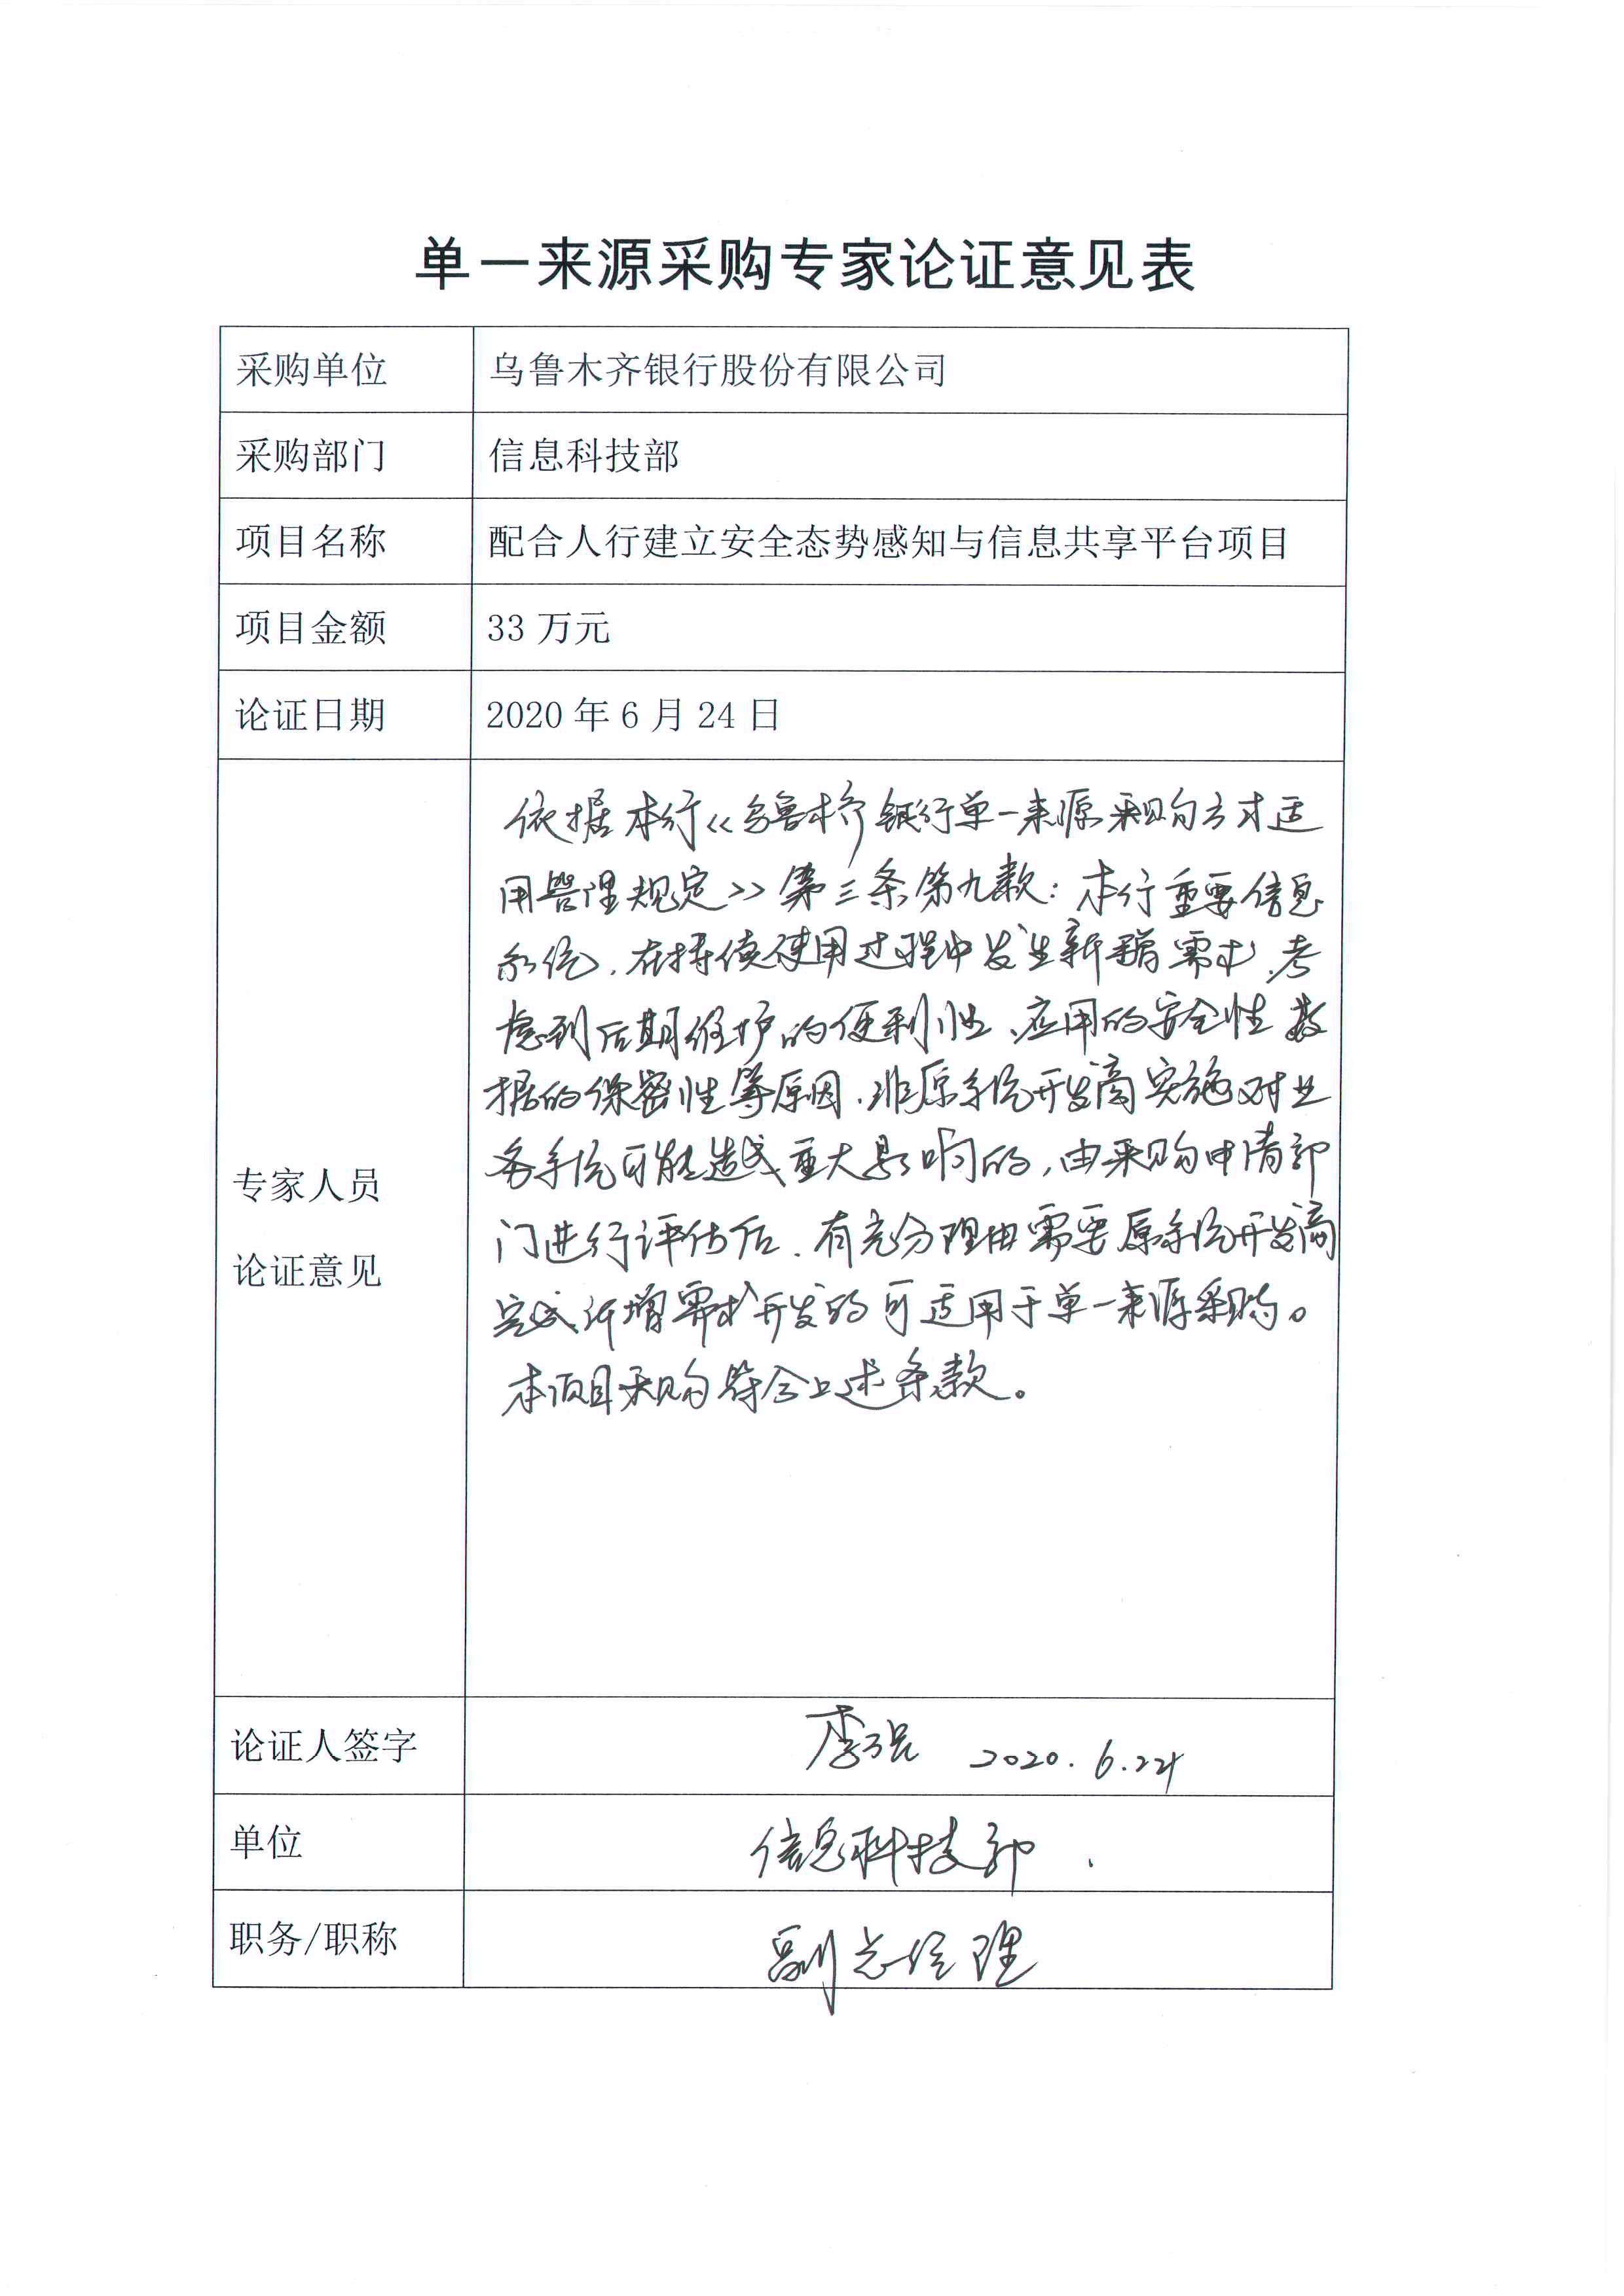 单一来源采购专家论证意见表
采购单位 乌鲁木齐银行股份有限公司
采购部门 信息科技部
项目名称 配合人行建立安全态势感知与信息共享平台项目
项目金额 33 万元
论证日期 2020 年 6 月 24 日
专家人员
论证意见
依据本行《乌鲁木齐银行单一来源采购方式适
用管理规定》第三条第九款：本行重要信息
系统，在持续使用过程中发生新增需求，考
虑到后期维护的便利性、应用的安全性数
据的保密性等原因，非原系统开发商实施对业
务系统可能造成重大影响的，由采购申请部
门进行评估后，有充分理由需要原系统开发商
完成新增需求开发的可适用于单一来源采购。
本项目采购符合上述条款。
论证人签字 李强 2020.6.24
单位 信息科技部
职务/职称 副总经理